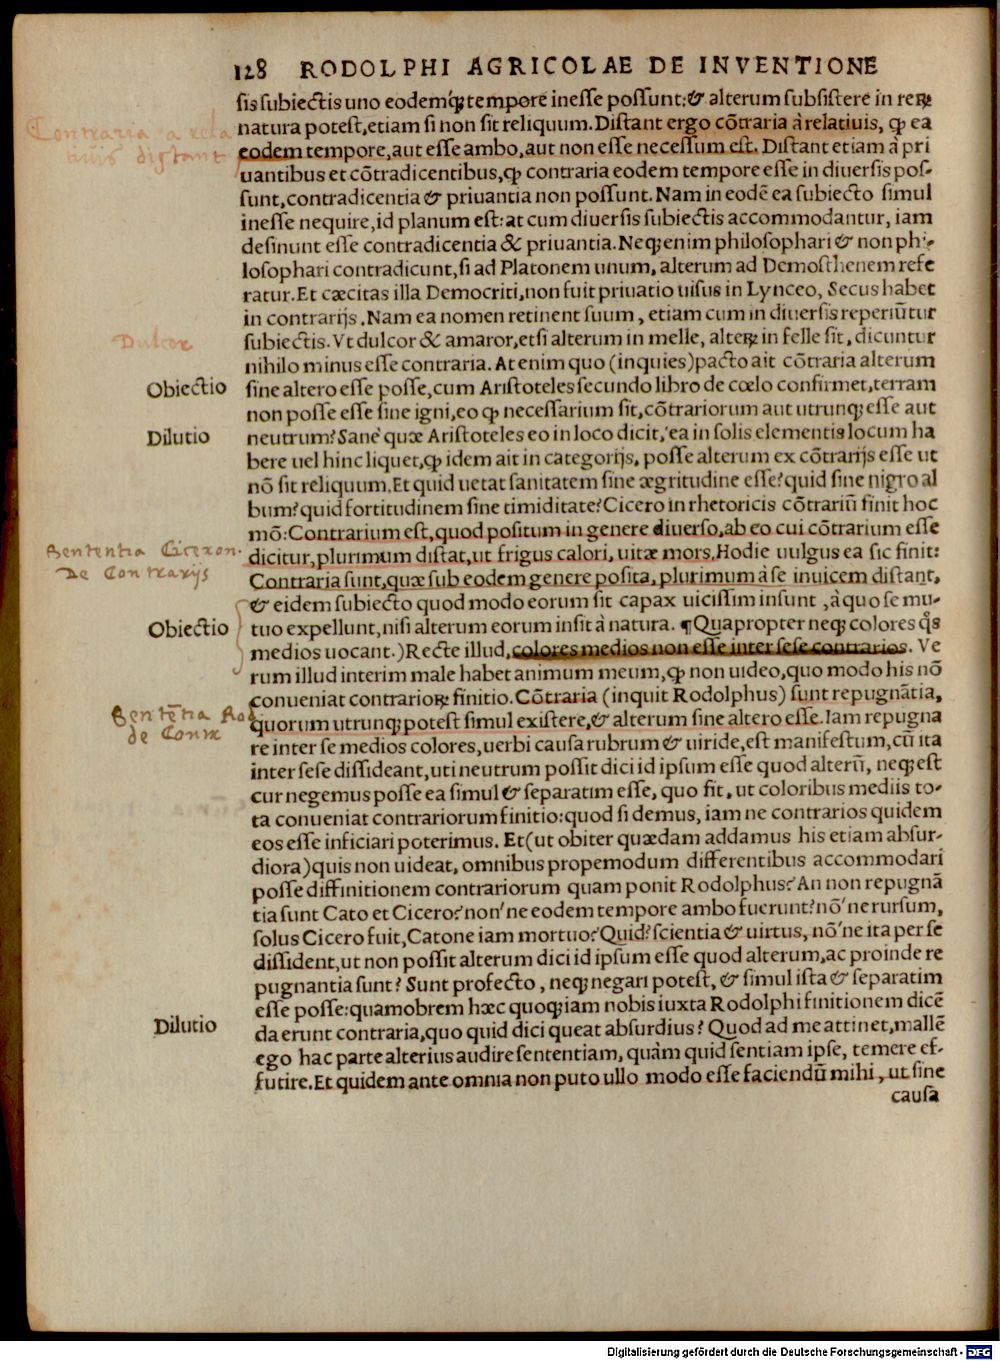 128 RODOLPHI AGRICOLAE DE INVENTIONE
sis subiectis uno eodemq́; tempore inesse possunt: & alterum subsistere in reꝝ
natura potest, etiam si non sit reliquum. Distant ergo cōtraria à relatiuis, ꝙ ea
eodem tempore, aut esse ambo, aut non esse necessum est. Distant etiam à pri
uantibus et cōtradicentibus, ꝙ contraria eodem tempore esse in diuersis pos-
sunt, contradicentia & priuantia non possunt. Nam in eodē ea subiecto simul
inesse nequire, id planum est: at cum diuersis subiectis accommodantur, iam
desinunt esse contradicentia & priuantia. Neq; enim philosophari & non phi-
losophari contradicunt, si ad Platonem unum, alterum ad Demosthenem refe
ratur. Et cæcitas illa Democriti, non fuit priuatio uisus in Lynceo, Secus habet
in contrarijs. Nam ea nomen retinent suum, etiam cum in diuersis reperiūtur
subiectis. Vt dulcor & amaror, etsi alterum in melle, alteꝝ in felle sit, dicuntur
nihilo minus esse contraria. At enim quo (inquies) pacto ait cōtraria alterum
sine altero esse posse, cum Aristoteles secundo libro de cœlo confirmet, terram
non posse esse sine igni, eo ꝙ necessarium sit, cōtrariorum aut utrunq; esse aut
neutrum? Sanè quæ Aristoteles eo in loco dicit, ea in solis elementis locum ha
bere uel hinc liquet, ꝙ idem ait in categorijs, posse alterum ex cōtrarijs esse ut
nō sit reliquum. Et quid uetat sanitatem sine ægritudine esse? quid sine nigro al
bum? quid fortitudinem sine timiditate? Cicero in rhetoricis cōtrariū finit hoc
mō: Contrarium est, quod positum in genere diuerso, ab eo cui cōtrarium esse
dicitur, plurimum distat, ut frigus calori, uitæ mors. Hodie uulgus ea sic finit:
Contraria sunt, quæ sub eodem genere posita, plurimum à se inuicem distant,
& eidem subiecto quod modo eorum sit capax uicissim insunt, à quo se mu-
tuo expellunt, nisi alterum eorum insit à natura. ¶ Quapropter neq; colores q̊s
medios uocant.) Recte illud, colores medios non esse inter sese contrarios. Ve
rum illud interim male habet animum meum, ꝙ non uideo, quo modo his nō
conueniat contrarioꝝ finitio. Cōtraria (inquit Rodolphus) sunt repugnātia,
quorum utrunq; potest simul existere, & alterum sine altero esse. Iam repugna
re inter se medios colores, uerbi causa rubrum & uiride, est manifestum, cū ita
inter sese dissideant, uti neutrum possit dici id ipsum esse quod alterū, neq; est
cur negemus posse ea simul & separatim esse, quo fit, ut coloribus mediis to-
ta conueniat contrariorum finitio: quod si demus, iam ne contrarios quidem
eos esse inficiari poterimus. Et (ut obiter quædam addamus his etiam absur-
diora) quis non uideat, omnibus propemodum differentibus accommodari
posse diffinitionem contrariorum quam ponit Rodolphus? An non repugnā
tia sunt Cato et Cicero? non'ne eodem tempore ambo fuerunt? nō'ne rursum,
solus Cicero fuit, Catone iam mortuo? Quid? scientia & uirtus, nō'ne ita per se
dissident, ut non possit alterum dici id ipsum esse quod alterum, ac proinde re
pugnantia sunt? Sunt profecto, neq; negari potest, & simul ista & separatim
esse posse: quamobrem hæc quoq; iam nobis iuxta Rodolphi finitionem dicē
da erunt contraria, quo quid dici queat absurdius? Quod ad me attinet, mallē
ego hac parte alterius audire sententiam, quàm quid sentiam ipse, temere ef-
futire. Et quidem ante omnia non puto ullo modo esse faciendū mihi, ut sine
causa
Contraria a rela
tiuis distant
Dulcor
Obiectio
Dilutio
Sententia Ciceron.
De Contrarijs
Obiectio
Sentētia Rod
de Contra
Dilutio
Digitalisierung gefördert durch die Deutsche Forschungsgemeinschaft - DFG